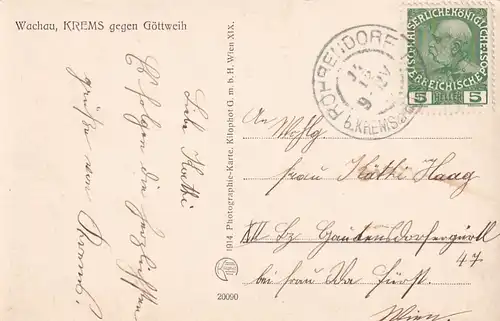 Wachau, KREMS gegen Göttweih
Liebe Kathi
Es folgen die herzlichsten
grüße von Krems.
1914 Photographie-Karte. Kilophot G. m. b. H. Wien XIX.
20090
ROHRENDORF
b. KREMS a/d
KAISERLICHE KÖNIGLICHE
ÖSTERREICHISCHE POST
5 HELLER 5
An Wohlg.
Frau Käthi Haag
XII Bz Gaudensdorfergürtl
47
bei Frau Fürst.
Wien.